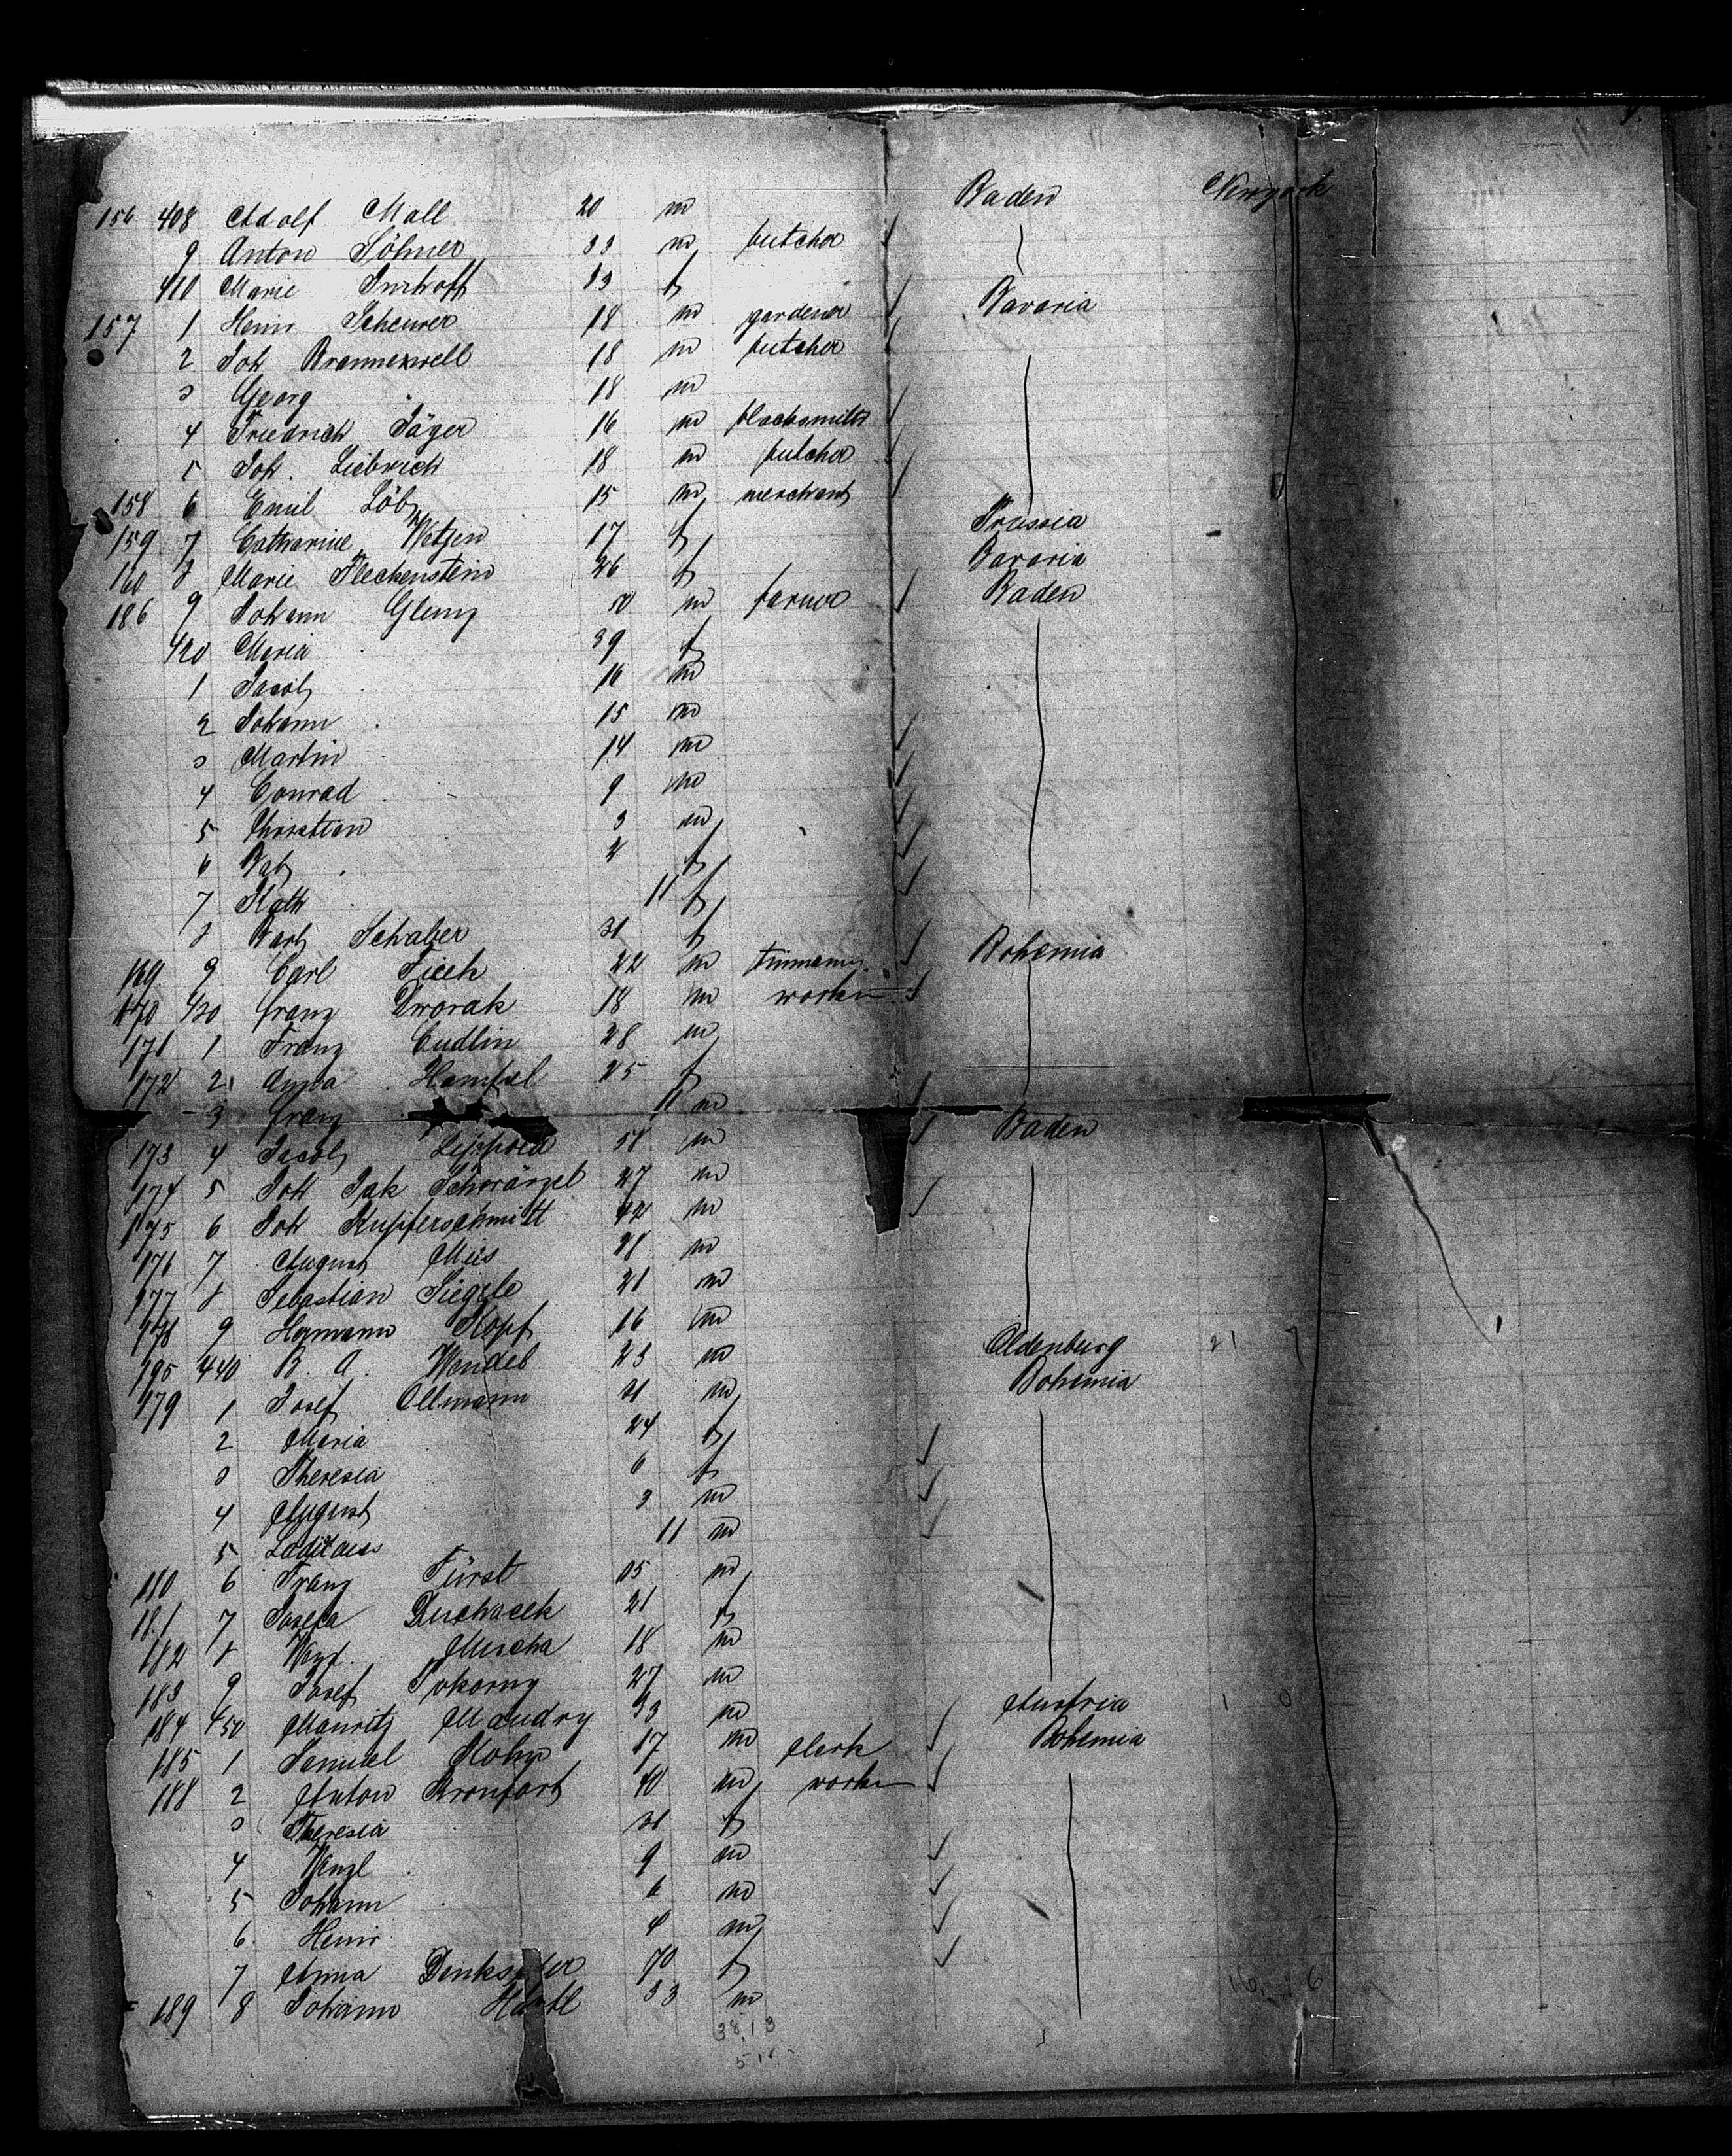 156 408 Adolf Mall 20 m Baden Newyork
9 Anton Söhner 33 m butcher
410 Marie Imhoff f
157 1 Heinr Scheurer 18 m gardener Bavaria
2 Joh 18 m butcher
3 Georg " 18 m
4 Friedrich Jäger 16 m blacksmith
5 Joh. Liebrich 18 m butcher
158 6 Emil Löb 15 m merchant
159 7 Catharine Wetzen 17 f Prussia
160 8 Marie Fleckenstein 26 f Bavaria
186 9 Johann Glung m farmer Baden
420 Maria 39 f
1 Jacob 16 m
2 Johann 15 m
3 Martin 14 m
4 Conrad 9 m
5 Christian 3 m
6 Bab 2 f
7 Kath 11 f
8 Barb Schaber 31 f
169 9 Carl Tiech 22 m Bohemia
170 430 Franz Dworak 18 m worker
171 1 Franz Cudlin 28 m
172 2 Anna Hampel 25 f
3 Franz 11 m
173 4 Jacob Leppold 58 m Baden
174 5 Joh Jak 27 m
175 6 Joh Kupferschmitt 42 m
176 7 August Mies 28 m
177 8 Sebastian Siegele 21 m
178 9 Hermann Kopf 16 m
195 440 B. A. Wendel 23 m Oldenburg
179 1 Josef Ollmann m Bohemia
2 Maria 24 f
3 Theresia 6 f
4 August 3 m
5 11 m
180 6 Franz Fürst m
181 7 Josefa Duchacek 21 f
182 8 Wenz. Mucha 18 m
183 9 Josef Pokorny 27 m
184 450 Mauritz Maudry 33 m Austria
185 1 Samuel Kohn 17 m clerk Bohemia
188 2 Anton Kronfort 40 m worker
3 Theresia f
4 Wenzl 9 m
5 Johann 6 m
6 Heinr 4 m
7 Anna 70 f
189 8 Johann 33 m